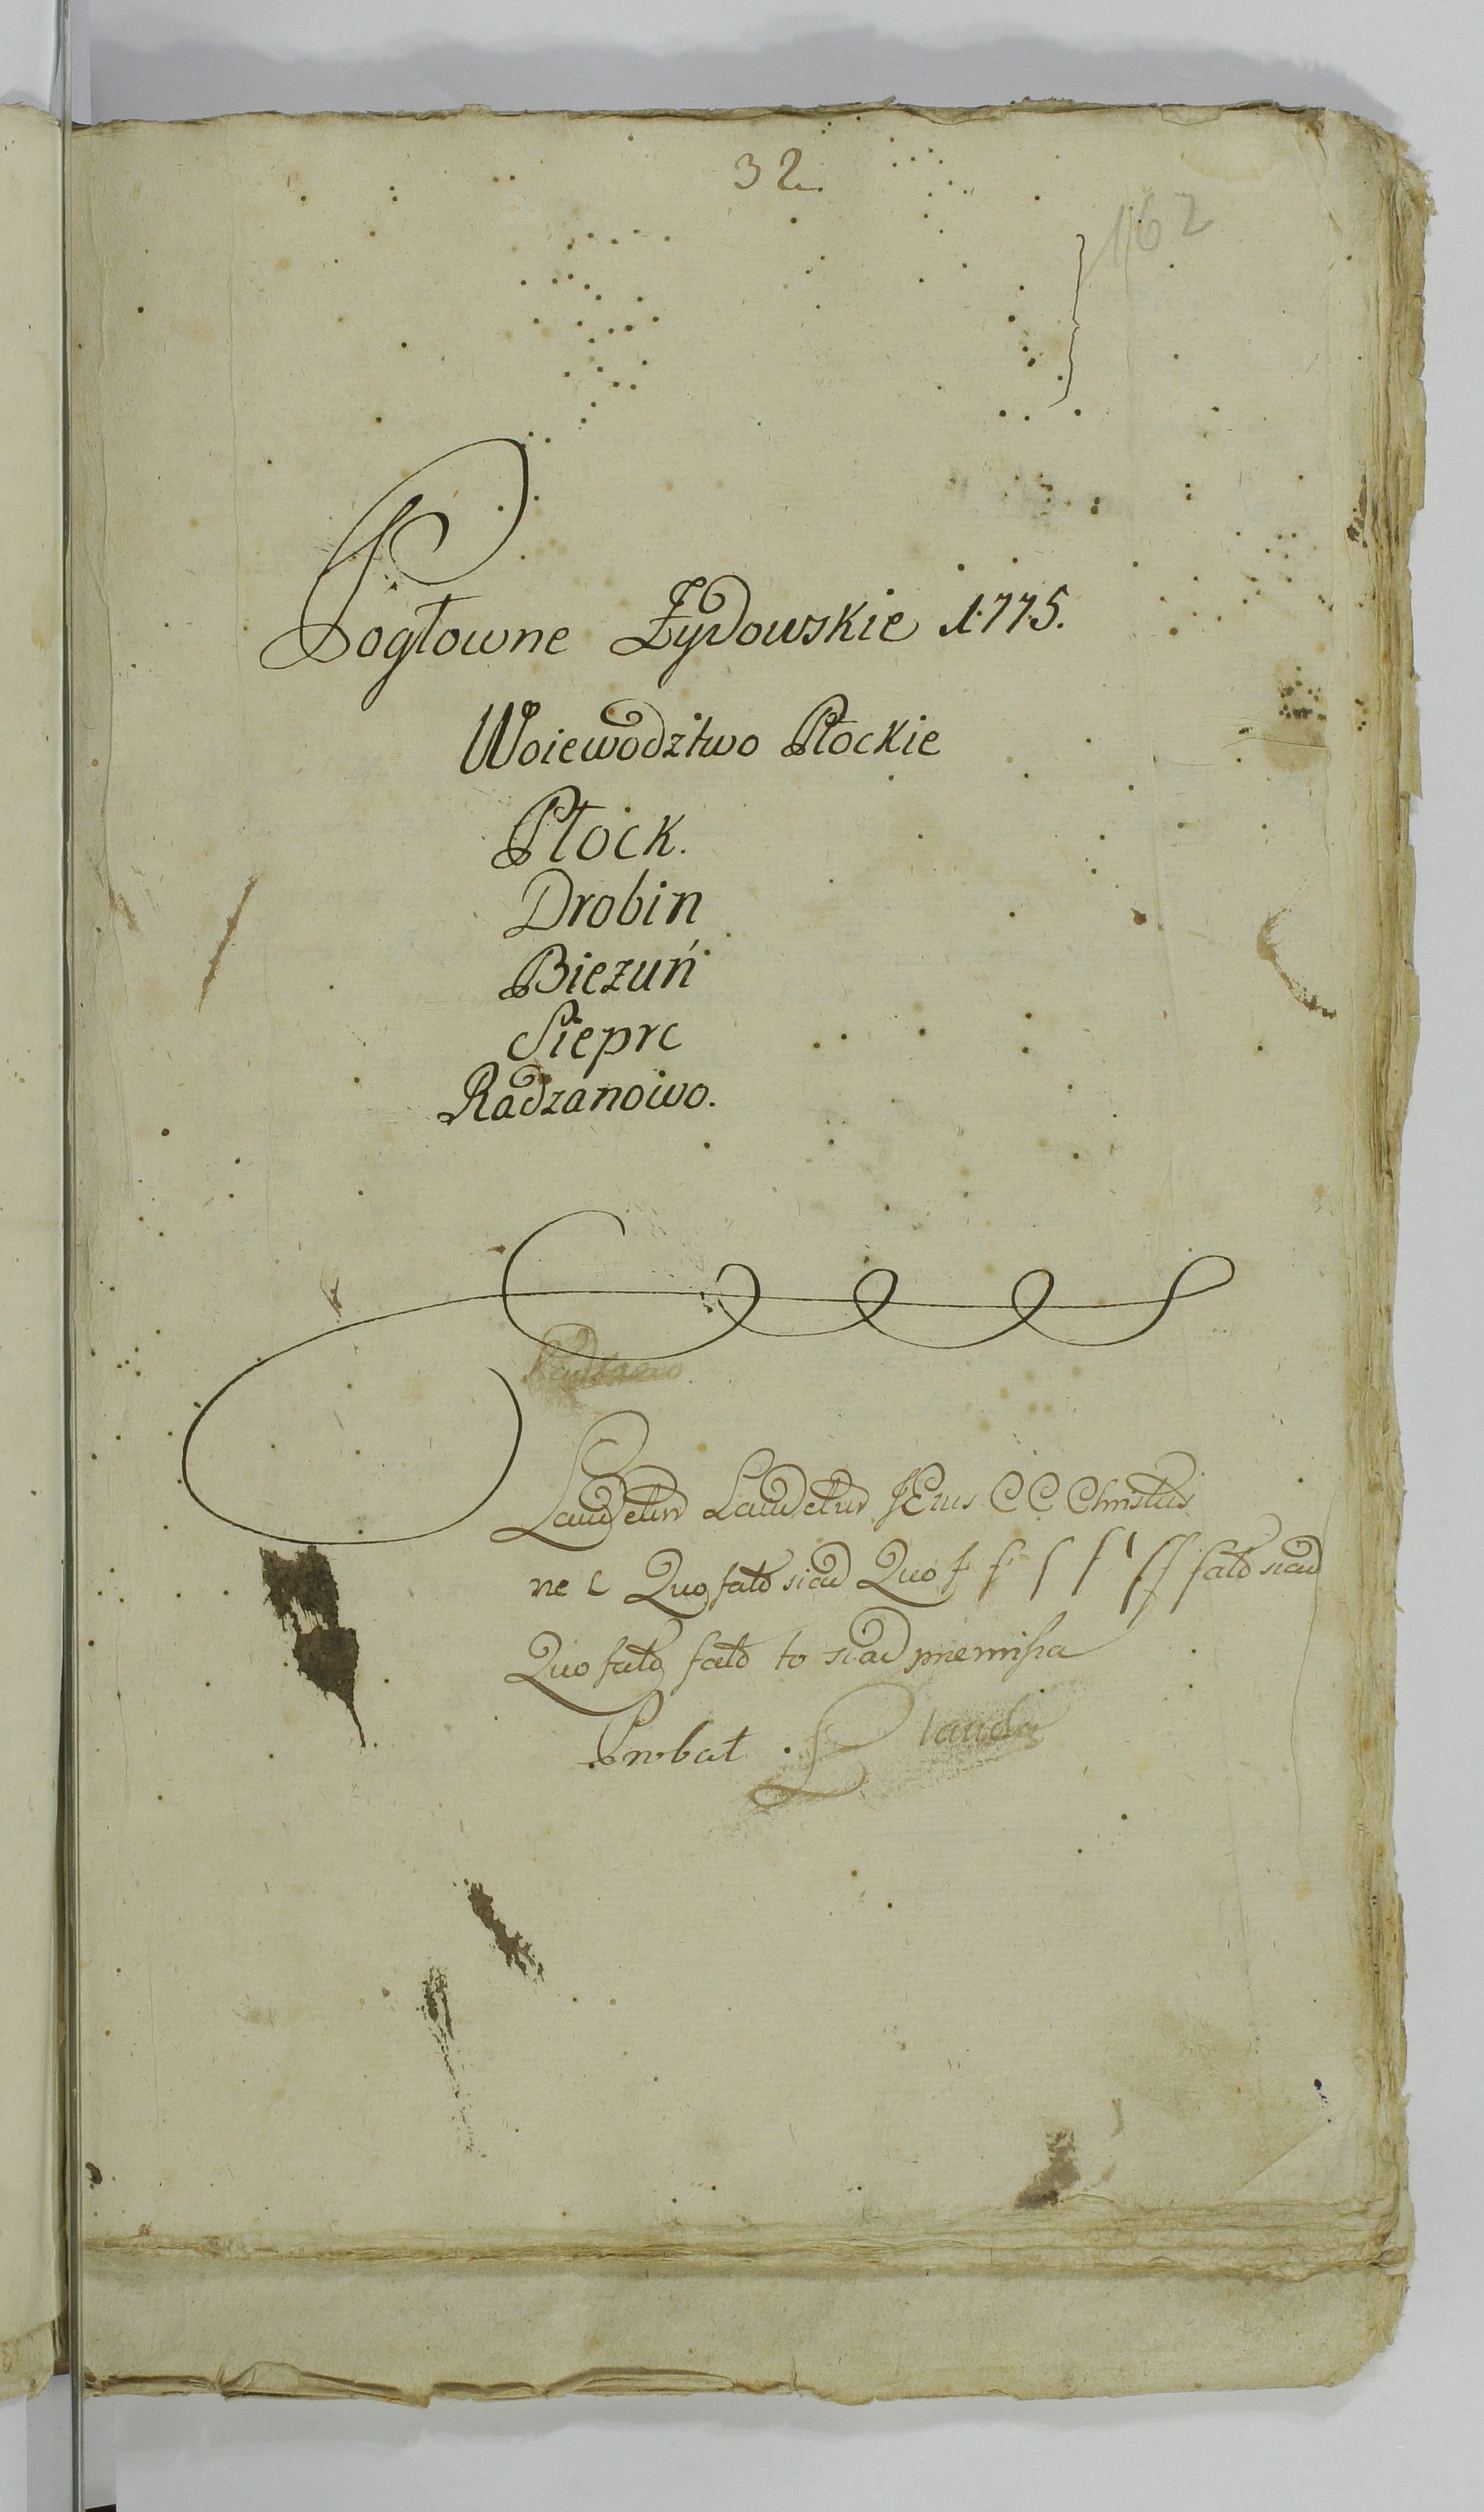 32
162
Pogłowne Żydowskie 1775.
Woiewodztwo Płockie
Płock.
Drobin
Bieżuń
Sieprc
Radzanowo.
Laudetur Laudetur JEsus C C Christus
ne c Quo fato siad Quo f f f f f f fato siad
Quo fato fato to siad premissa
Probat